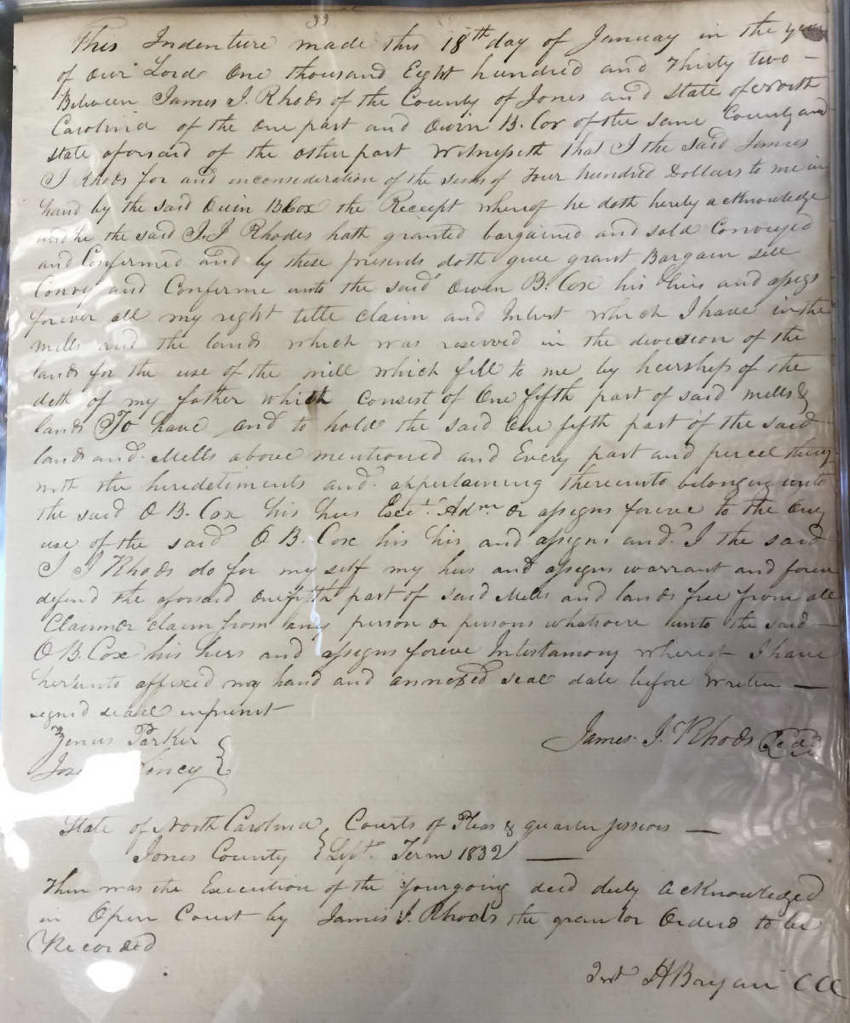 33
This Indenture made this 18th day of January in the year
of our Lord One thousand Eight hundred and Thirty two —
Between James J. Rhods of the County of Jones and State of North
Carolina of the One part and Owin B. Cox of the same County and
State aforsaid of the other part Witnesseth that I the said James
J Rhods for and inconsideration of the sum of Four hundred Dollars to me in
hand by the said Owin B Cox the Receipt whereof he doth hereby acknowledge
and he the said J. J Rhodes hath granted bargained and sold Conveyed
and Confirmed and by these presents doth give grant Bargain sell
Convey and Confirme unto the said Owen B. Cox his heirs and assigs
forever all my right title claim and Intrest which I have in the
mills and the lands which was reserved in the devision of the
lands for the use of the mill which fell to me by heirship of the
deth of my father which Consist of One fifth part of said mells &
lands To have and to hold the said One fifth part of the said
lands and Mells above mentioned and Every part and percel
with the hereditiments and appertaining thereunto belonging unto
the said O B. Cox his heirs Admr or assigns forever to the Only
use of the said O B. Cox his hirs and assigns and I the said
J J Rhods do for my self my heirs and assigns warrant and forever
defend the aforsaid onefifth part of said Mells and lands free from all
Claim or claim from any person or persons whatsoever unto the said
O B. Cox his heirs and assigns forever Intestamony whereof I have
herunto affixed my hand and annexed seal date before writen —
signd seald inpresent
Zenus Parker
James J. Rhods
State of North Carolina } Courts of Pleas & quarter sessions —
Jones County } Sept. Term 1832 —
Then was the Execution of the fourgoing deed duly acknowledged
in Open Court by James J. Rhods the grantor Orderd to be
Recorded
Test H Bryan CCC